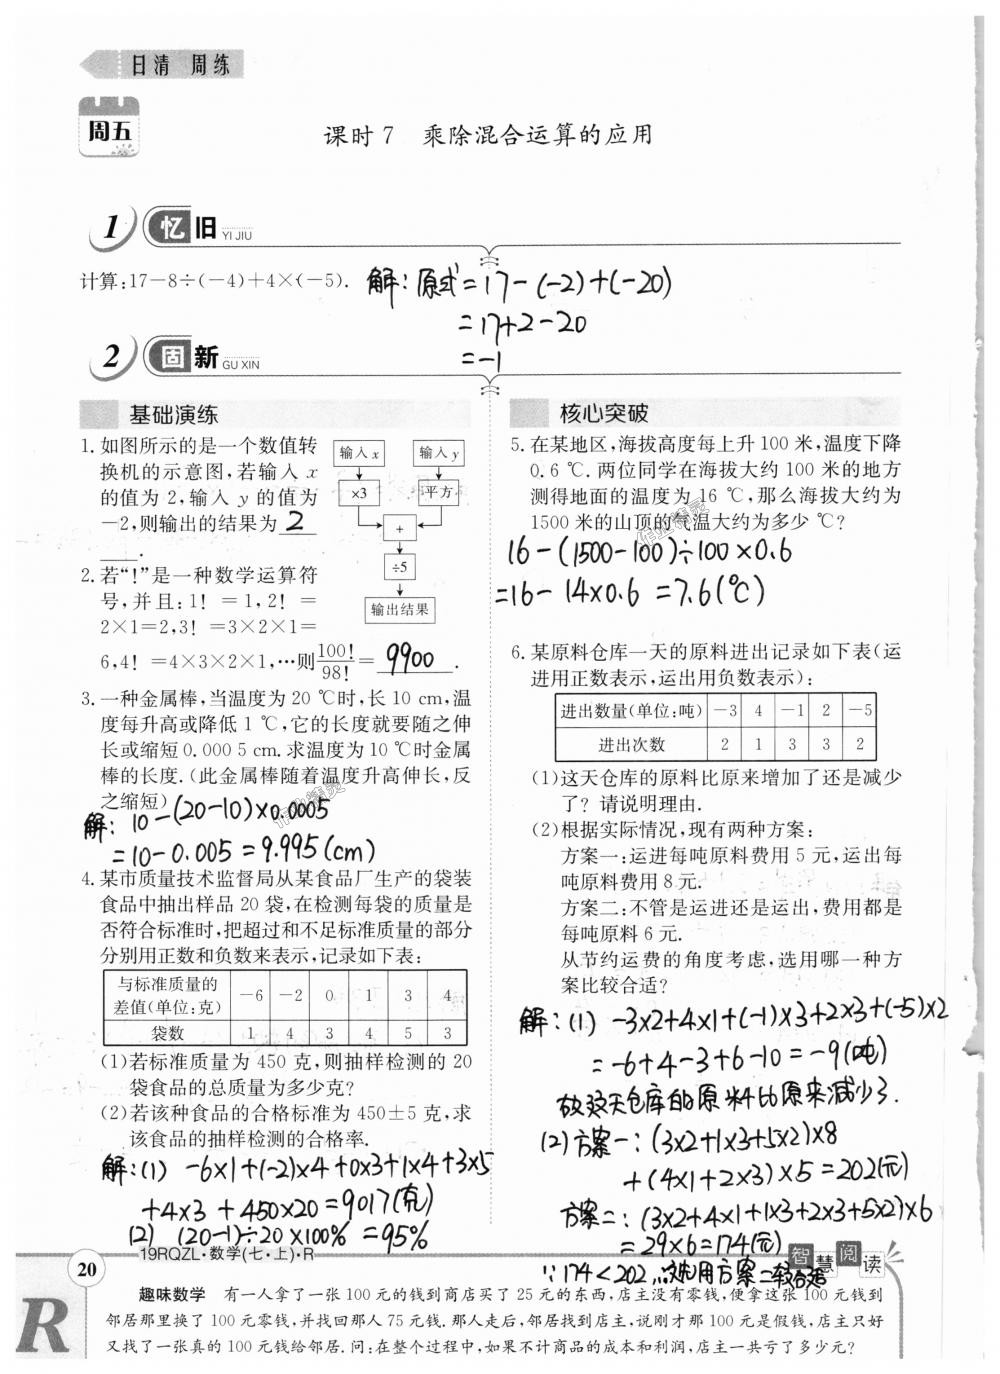 日清 周练
周五
课时7 乘除混合运算的应用
1 忆旧 YI JIU
计算:17-8÷(-4)+4×(-5).
解:原式=17-(-2)+(-20)
=17+2-20
=-1
2 固新 GU XIN
基础演练
1.如图所示的是一个数值转
换机的示意图,若输入 x
的值为 2,输入 y 的值为
-2,则输出的结果为 2
.
输入 x 输入 y
×3 平方
+
÷5
输出结果
2.若“!”是一种数学运算符
号,并且:1! =1,2! =
2×1=2,3! =3×2×1=
6,4! =4×3×2×1,…则100!/98!= 9900 .
3.一种金属棒,当温度为 20 ℃时,长 10 cm,温
度每升高或降低 1 ℃,它的长度就要随之伸
长或缩短0.000 5 cm.求温度为 10 ℃时金属
棒的长度.(此金属棒随着温度升高伸长,反
之缩短)
解: 10-(20-10)×0.0005
=10-0.005=9.995(cm)
4.某市质量技术监督局从某食品厂生产的袋装
食品中抽出样品 20 袋,在检测每袋的质量是
否符合标准时,把超过和不足标准质量的部分
分别用正数和负数来表示,记录如下表:
与标准质量的差值(单位:克) -6 -2 0 1 3 4
袋数 1 4 3 4 5 3
(1)若标准质量为 450 克,则抽样检测的 20
袋食品的总质量为多少克?
(2)若该种食品的合格标准为 450±5 克,求
该食品的抽样检测的合格率.
解:(1) -6×1+(-2)×4+0×3+1×4+3×5
+4×3+450×20=9017(克)
(2) (20-1)÷20×100%=95%
核心突破
5.在某地区,海拔高度每上升 100 米,温度下降
0.6 ℃.两位同学在海拔大约 100 米的地方
测得地面的温度为 16 ℃,那么海拔大约为
1500 米的山顶的气温大约为多少 ℃?
16-(1500-100)÷100×0.6
=16-14×0.6=7.6(℃)
6.某原料仓库一天的原料进出记录如下表(运
进用正数表示,运出用负数表示):
进出数量(单位:吨) -3 4 -1 2 -5
进出次数 2 1 3 3 2
(1)这天仓库的原料比原来增加了还是减少
了? 请说明理由.
(2)根据实际情况,现有两种方案:
方案一:运进每吨原料费用 5 元,运出每
吨原料费用 8 元.
方案二:不管是运进还是运出,费用都是
每吨原料 6 元.
从节约运费的角度考虑,选用哪一种方
案比较合适?
解:(1) -3×2+4×1+(-1)×3+2×3+(-5)×2
=-6+4-3+6-10=-9(吨)
故这天仓库的原料比原来减少了.
(2)方案一:(3×2+1×3+5×2)×8
+(4×1+2×3)×5=202(元)
方案二:(3×2+4×1+1×3+2×3+5×2)×6
=29×6=174(元)
∵174<202 ∴选用方案二较合适
19RQZL·数学(七·上)·R
20
智慧阅读
R
趣味数学 有一人拿了一张 100 元的钱到商店买了 25 元的东西,店主没有零钱,便拿这张 100 元钱到
邻居那里换了 100 元零钱,并找回那人 75 元钱.那人走后,邻居找到店主,说刚才那 100 元是假钱,店主只好
又找了一张真的 100 元钱给邻居.问:在整个过程中,如果不计商品的成本和利润,店主一共亏了多少元?